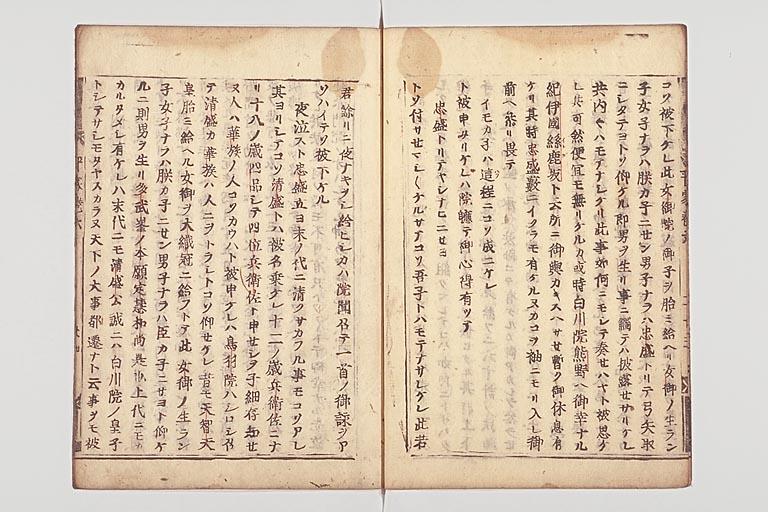 コソ被下ケレ此女御院ノ御子ヲ胎ミ給ヘリ女御ノ生ラン
子女子ナラハ朕カ子ニセン男子ナラハ忠盛トリテ弓矢取
ニシタテヨトソ仰ケル即男ヲ生リ事ニ觸テハ披露セサリケレ
共内々ハモテナシケリ此事如何ニモシテ奏セハヤト被思ケ
レ共可然便宜モ無リケルカ或時白川院熊野ヘ御幸ナル
紀伊國絲鹿坂ト云所ニ御輿カキスヘサセ暫ク御休息有
ケリ其時忠盛藪ニイクラモ有ケルヌカコヲ袖ニモリ入レ御
前ヘ參リ畏テ
イモカ子ハ這程ニコソ成ニケレ
ト被申タリケレハ院軈テ御心得有ツテ
忠盛トリテヤシナヒニセヨ
トソ付サセマシ〱ケルサテコソ吾子トハモテナサレケレ此若
君餘リニ夜ナキヲシ給ヒシカハ院聞召テ一首ノ御詠ヲア
ソハイテソ被下ケル
夜泣ストモ忠盛立ヨ末ノ代ニ清クサカフル事モコソアレ
其ヨリシテコソ清盛トハ被名乗ケレ十二ノ歳兵衛佐ニナ
リ十八ノ歳四品シテ四位兵衛佐ト申セシヲ子細存知セ
ヌ人ハ華族ノ人コソカウハト被申ケレハ鳥羽院ハシロシ召
テ清盛カ華族ハ人ニヲトラシトコソ仰セケレ昔モ天智天
皇胎ミ給ヘル女御ヲ大織冠ニ給フトテ此女御ノ生ラン
子女子ナラハ朕カ子ニセン男子ナラハ臣カ子ニサヨト仰ケ
ルニ則男ヲ生リ多武峯ノ本願定惠和尚是也上代ニモカ
カルタメシ有ケレハ末代ニモ清盛公誠ニハ白川院ノ皇子
トシテサシモタヤスカラヌ天下ノ大事都遷ナト云事ヲモ被